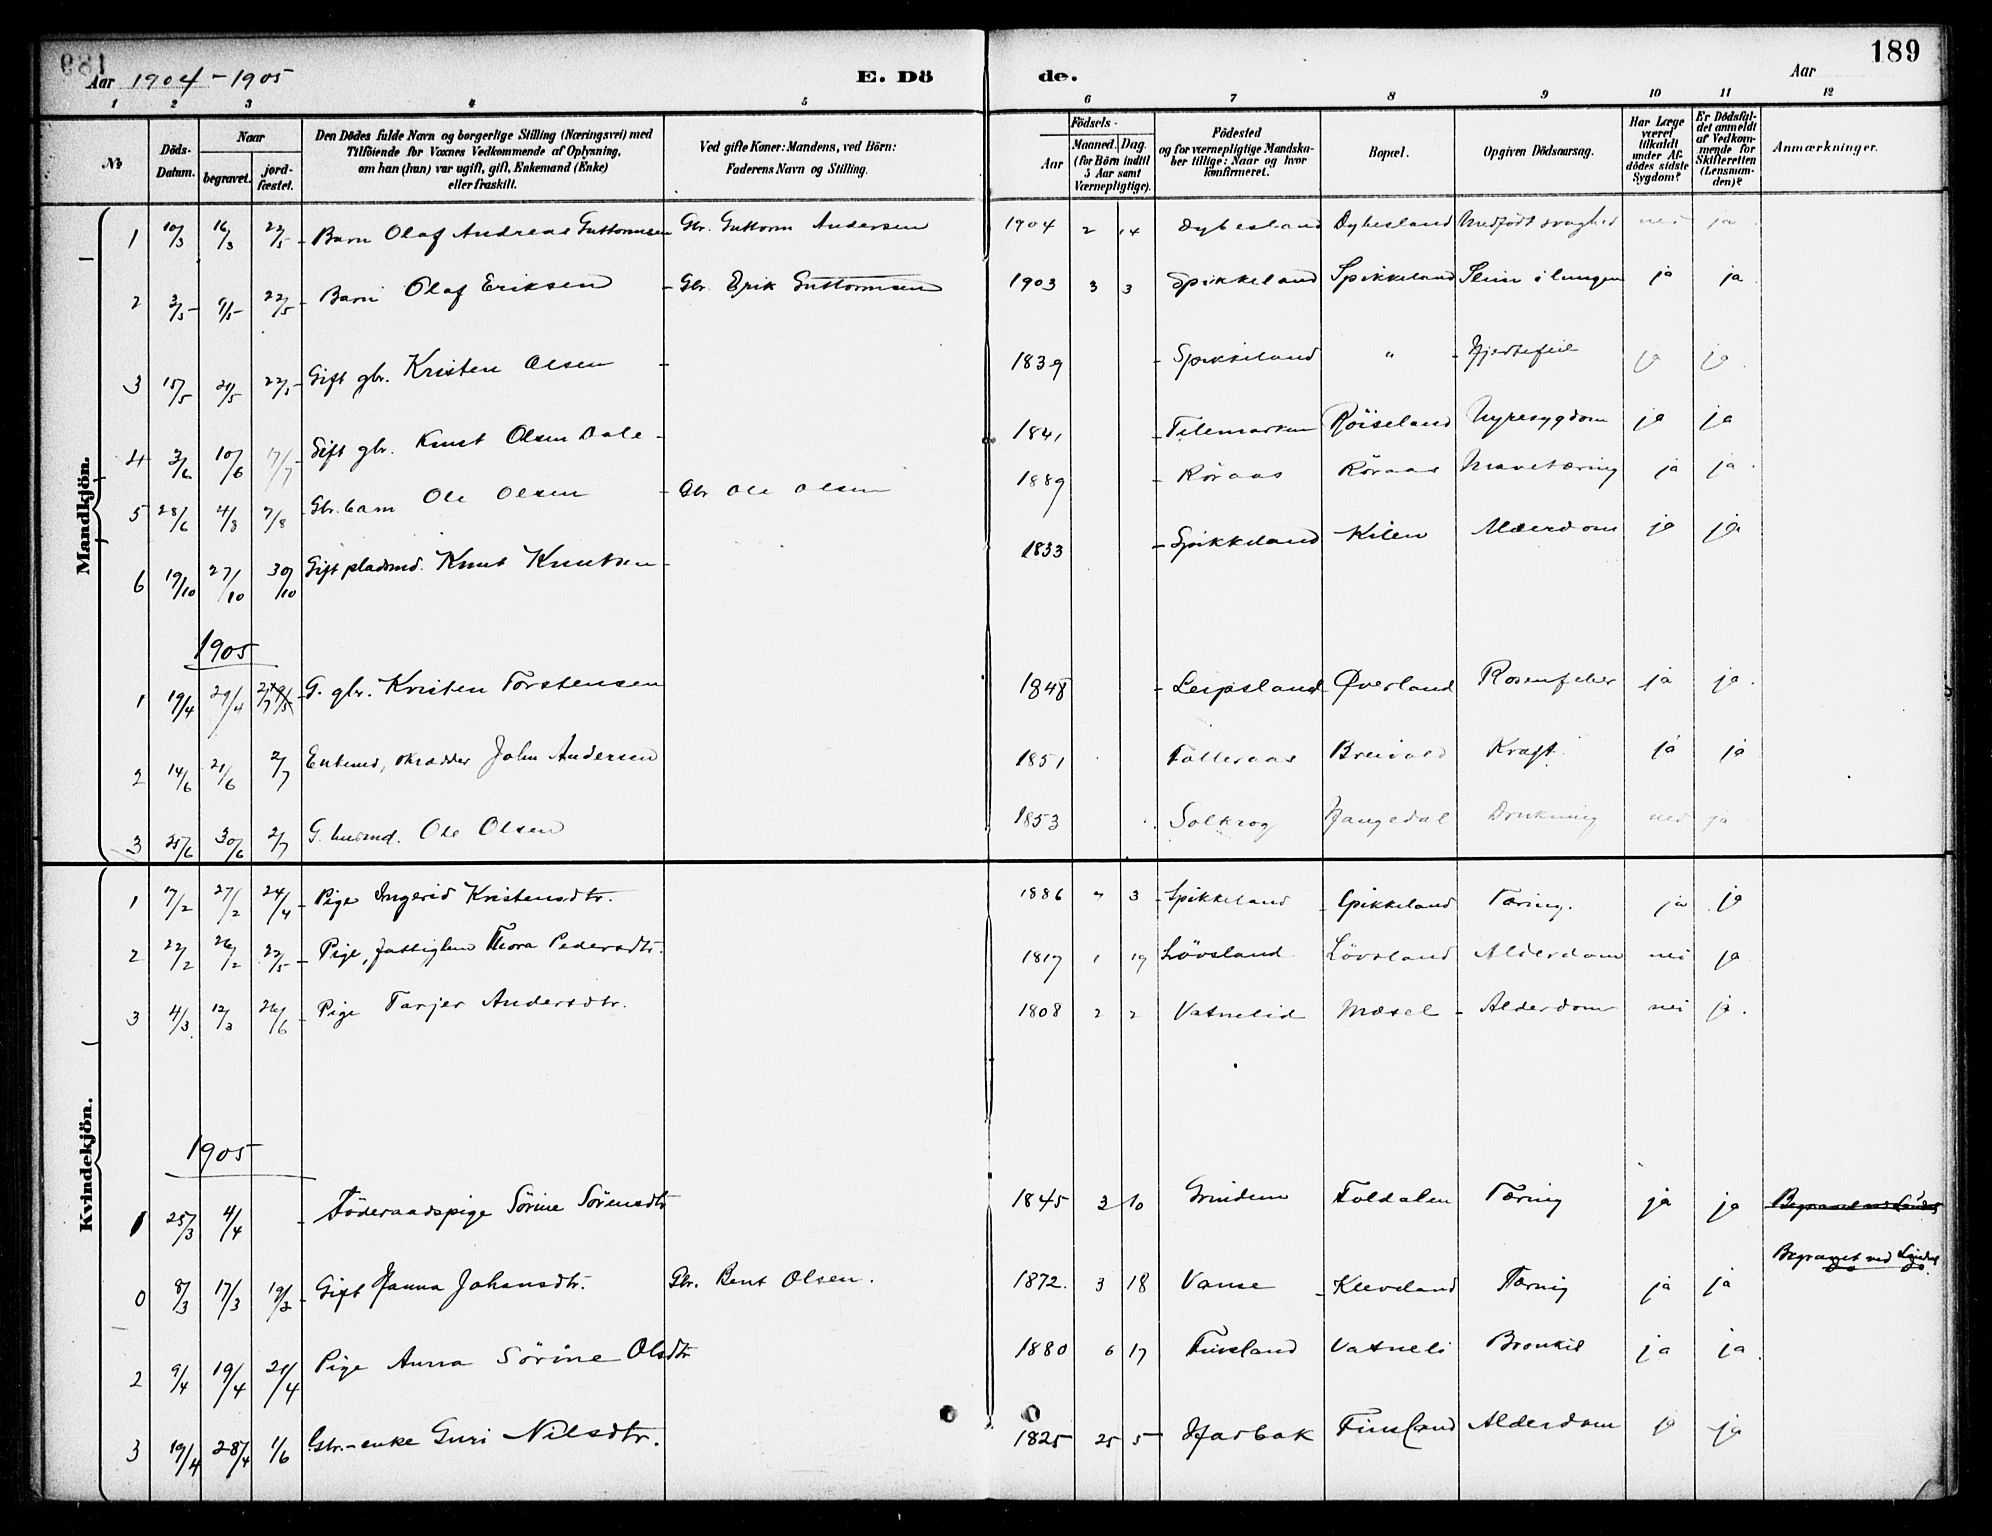 189
Aar 1904-1905 E. Dö de. Aar
1 2 3 4 5 6 7 8 9 10 11 12
No
Döds-Datum.
Naar
begravet.
jord-fæstet.
Den Dödes fulde Navn og borgerlige Stilling (Næringsvei) med
Tilföiende for Voxnes Vedkommende af Oplysning,
om han (hun) var ugift, gift, Enkemand (Enke)
eller fraskilt.
Ved gifte Koner: Mandens, ved Börn:
Faderens Navn og Stilling.
Födsels-
Aar
Maaned. Dag.
(for Börn indtil
5 Aar samt
Værnepligtige).
Födested
og for værnepligtige Mandska-
ber tillige: Naar og hvor
konfirmeret.
Bopæl.
Opgiven Dödsaarsag.
Har Læge
været
tilkaldt
under Af-
dödes sidste
Sygdom?
Er Dödsfal-
det anmeldt
af Vedkom-
mende for
Skifteretten
(Lensman-
den)?
Anmærkninger.
Mandkjön.
1 10/3 16/3 22/5 Barn Olaf Andreas Guttormsen Gbr. Guttorm Andersen 1904 2 14 Dybesland Dybesland Medfödt svaghed nei ja
2 3/5 9/5 22/5 Barn Olaf Eriksen Gbr. Erik Guttormsen 1903 3 3 Spikkeland Spikkeland Slim i lungen ja ja
3 15/5 21/5 22/5 Gift gbr. Kristen Olsen 1839 Spikkeland " Hjertefeil ja ja
4 3/6 10/6 17/7 Gift gbr. Knut Olsen Dale 1841 Telemarken Röiseland Nyresygdom ja ja
5 28/6 4/8 7/8 Gbr. barn Ole Olsen Gbr Ole Olsen 1889 Röraas Röraas Mavetæring ja ja
6 19/10 27/10 30/10 Gift pladsmd. Knut Knutsen 1833 Spikkeland Kilen Alderdom ja ja
1905
1 19/4 29/4 2/7 G. gbr. Kristen Torstensen 1848 Leipsland Øverland Rosenfeber ja ja
2 14/6 21/6 2/7 Enkemd, skrædder John Andersen 1851 Folleraas Breivold Kræft ja ja
3 25/6 30/6 2/7 G. husmd. Ole Olsen 1853 Solkrog Haugedal Drukning nei ja
Kvindekjön.
1 17/2 27/2 24/4 Pige Ingerid Kristensdtr. 1886 " 3 Spikkeland Spikkeland Tæring. ja ja
2 22/2 26/2 22/5 Pige, fattiglem Thora Pedersdtr. 1817 1 19 Lövsland Lövsland Alderdom nei ja
3 4/3 12/3 26/6 Pige Tarjer Andersdtr. 1808 2 2 Vatnelid Mæsel Alderdom nei ja
1905
1 25/3 4/4 Föderaadspige Sörine Sörensdtr 1845 3 10 Grindem Foldalen Tæring ja ja
0 8/3 17/3 19/3 Gift Hanna Johansdtr. Gbr. Bent Olsen. 1872. 3 18 Vanse Kleveland Tæring ja ja Begravet ved
2 9/4 19/4 21/4 Pige Anna Sörine Olsdtr 1880 6 17 Finsland Vatneli Bronkit ja ja
3 19/4 28/4 1/6 Gbr.-enke Guri Nilsdtr. 1825 25 5 Harbak Finsland Alderdom ja ja